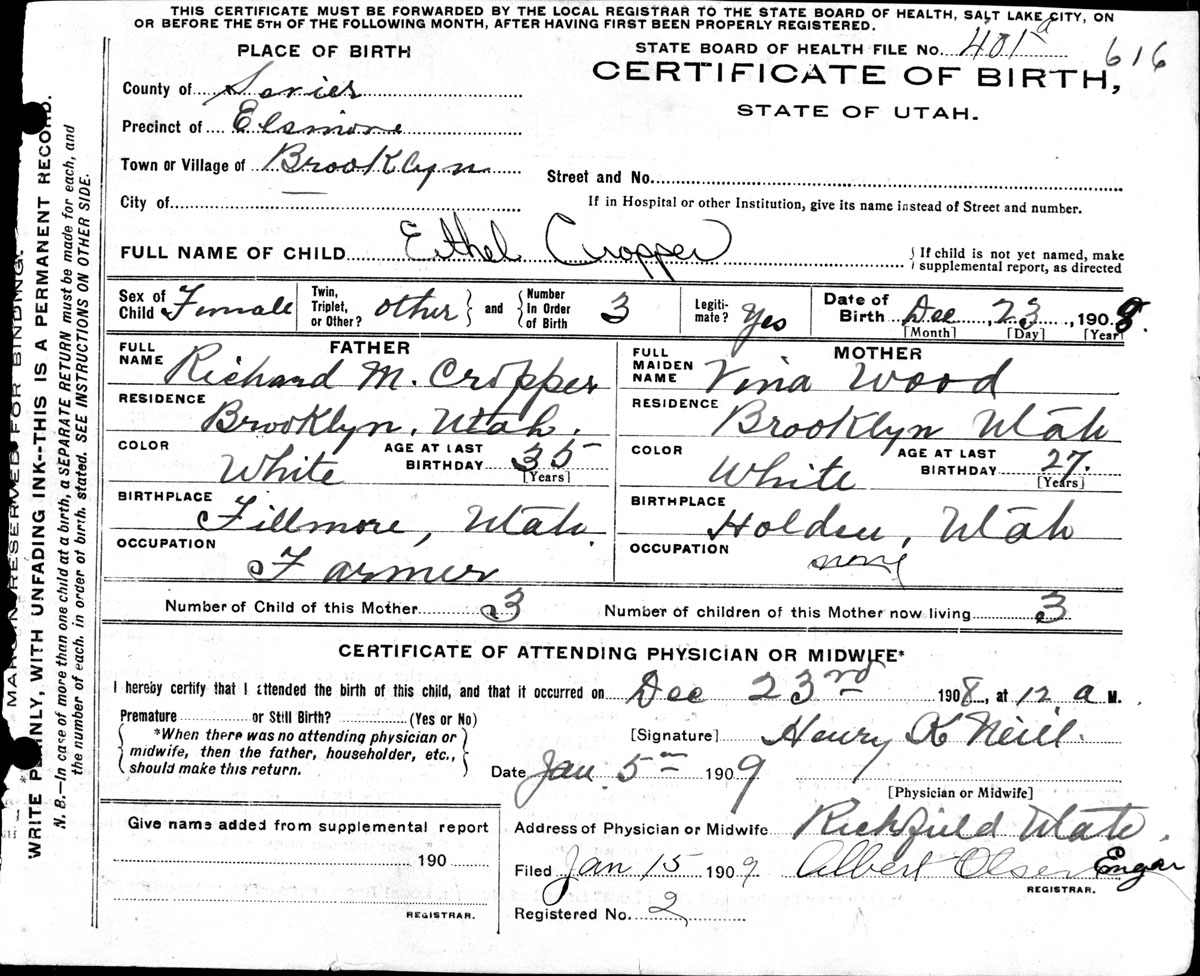 THIS CERTIFICATE MUST BE FORWARDED BY THE LOCAL REGISTRAR TO THE STATE BOARD OF HEALTH, SALT LAKE CITY, ON
OR BEFORE THE 5TH OF THE FOLLOWING MONTH, AFTER HAVING FIRST BEEN PROPERLY REGISTERED.
PLACE OF BIRTH
STATE BOARD OF HEALTH FILE No. 401a 616
CERTIFICATE OF BIRTH,
STATE OF UTAH.
County of Sevier
Precinct of Elsinore
Town or Village of Brooklyn
City of
Street and No.
If in Hospital or other Institution, give its name instead of Street and number.
FULL NAME OF CHILD Ethel Cropper
If child is not yet named, make
supplemental report, as directed
Sex of Child Female
Twin, Triplet, or Other? other and Number In Order of Birth 3
Legiti-mate? Yes
Date of Birth Dec 23, 1908
[Month] [Day] [Year]
FATHER
FULL NAME Richard M. Cropper
RESIDENCE Brooklyn, Utah.
COLOR White AGE AT LAST BIRTHDAY 35
[Years]
BIRTHPLACE Fillmore, Utah.
OCCUPATION Farmer
MOTHER
FULL MAIDEN NAME Vina Wood
RESIDENCE Brooklyn Utah
COLOR White AGE AT LAST BIRTHDAY 27.
[Years]
BIRTHPLACE Holden, Utah
OCCUPATION none
Number of Child of this Mother 3 Number of children of this Mother now living 3
CERTIFICATE OF ATTENDING PHYSICIAN OR MIDWIFE*
I hereby certify that I attended the birth of this child, and that it occurred on Dec 23rd 1908, at 12, a M.
Premature or Still Birth? (Yes or No)
*When there was no attending physician or
midwife, then the father, householder, etc.,
should make this return.
[Signature] Henry K Neill.
Date Jan 5th 1909
[Physician or Midwife]
Give name added from supplemental report
190
REGISTRAR.
Address of Physician or Midwife Richfield Utah.
Filed Jan 15 1909 Albert Olsen
REGISTRAR.
Registered No. 2
MARGIN RESERVED FOR BINDING.
WRITE PLAINLY, WITH UNFADING INK--THIS IS A PERMANENT RECORD.
N. B.—In case of more than one child at a birth, a SEPARATE RETURN must be made for each, and
the number of each, in order of birth, stated. SEE INSTRUCTIONS ON OTHER SIDE.